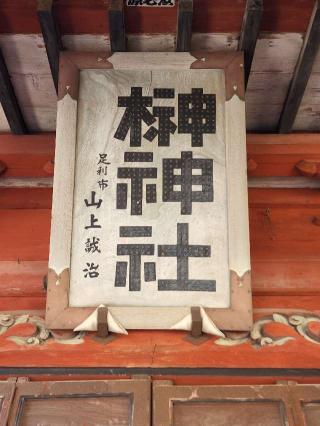 榊神社
足利市
山上誠治